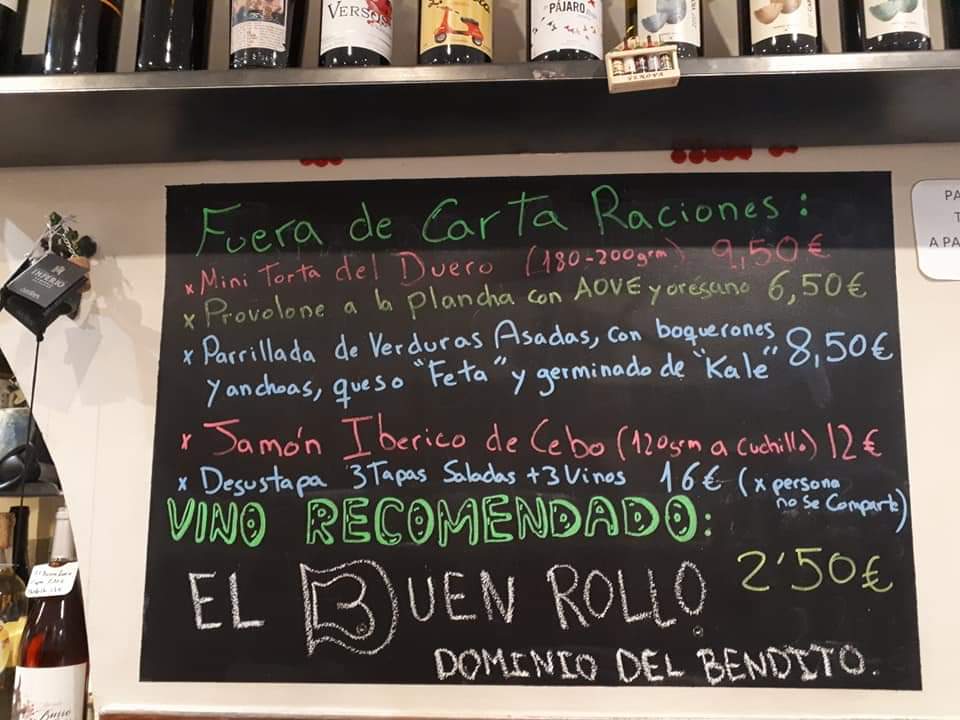 VERSOS
PÁJARO
GENOVA
PA
T
A PA
IMPERIO
Fuera de Carta Raciones:
x Mini Torta del Duero (180-200grm) 9,50€
x Provolone a la plancha con AOVE y orégano 6,50€
x Parrillada de Verduras Asadas, con boquerones
y anchoas, queso "Feta" y germinado de "Kale" 8,50€
x Jamón Iberico de Cebo (120grm a cuchillo) 12€
x Desustapa 3 Tapas Saladas + 3 Vinos 16€ (x persona
no se comparte)
VINO RECOMENDADO:
EL BUEN ROLLO 2'50€
DOMINIO DEL BENDITO.